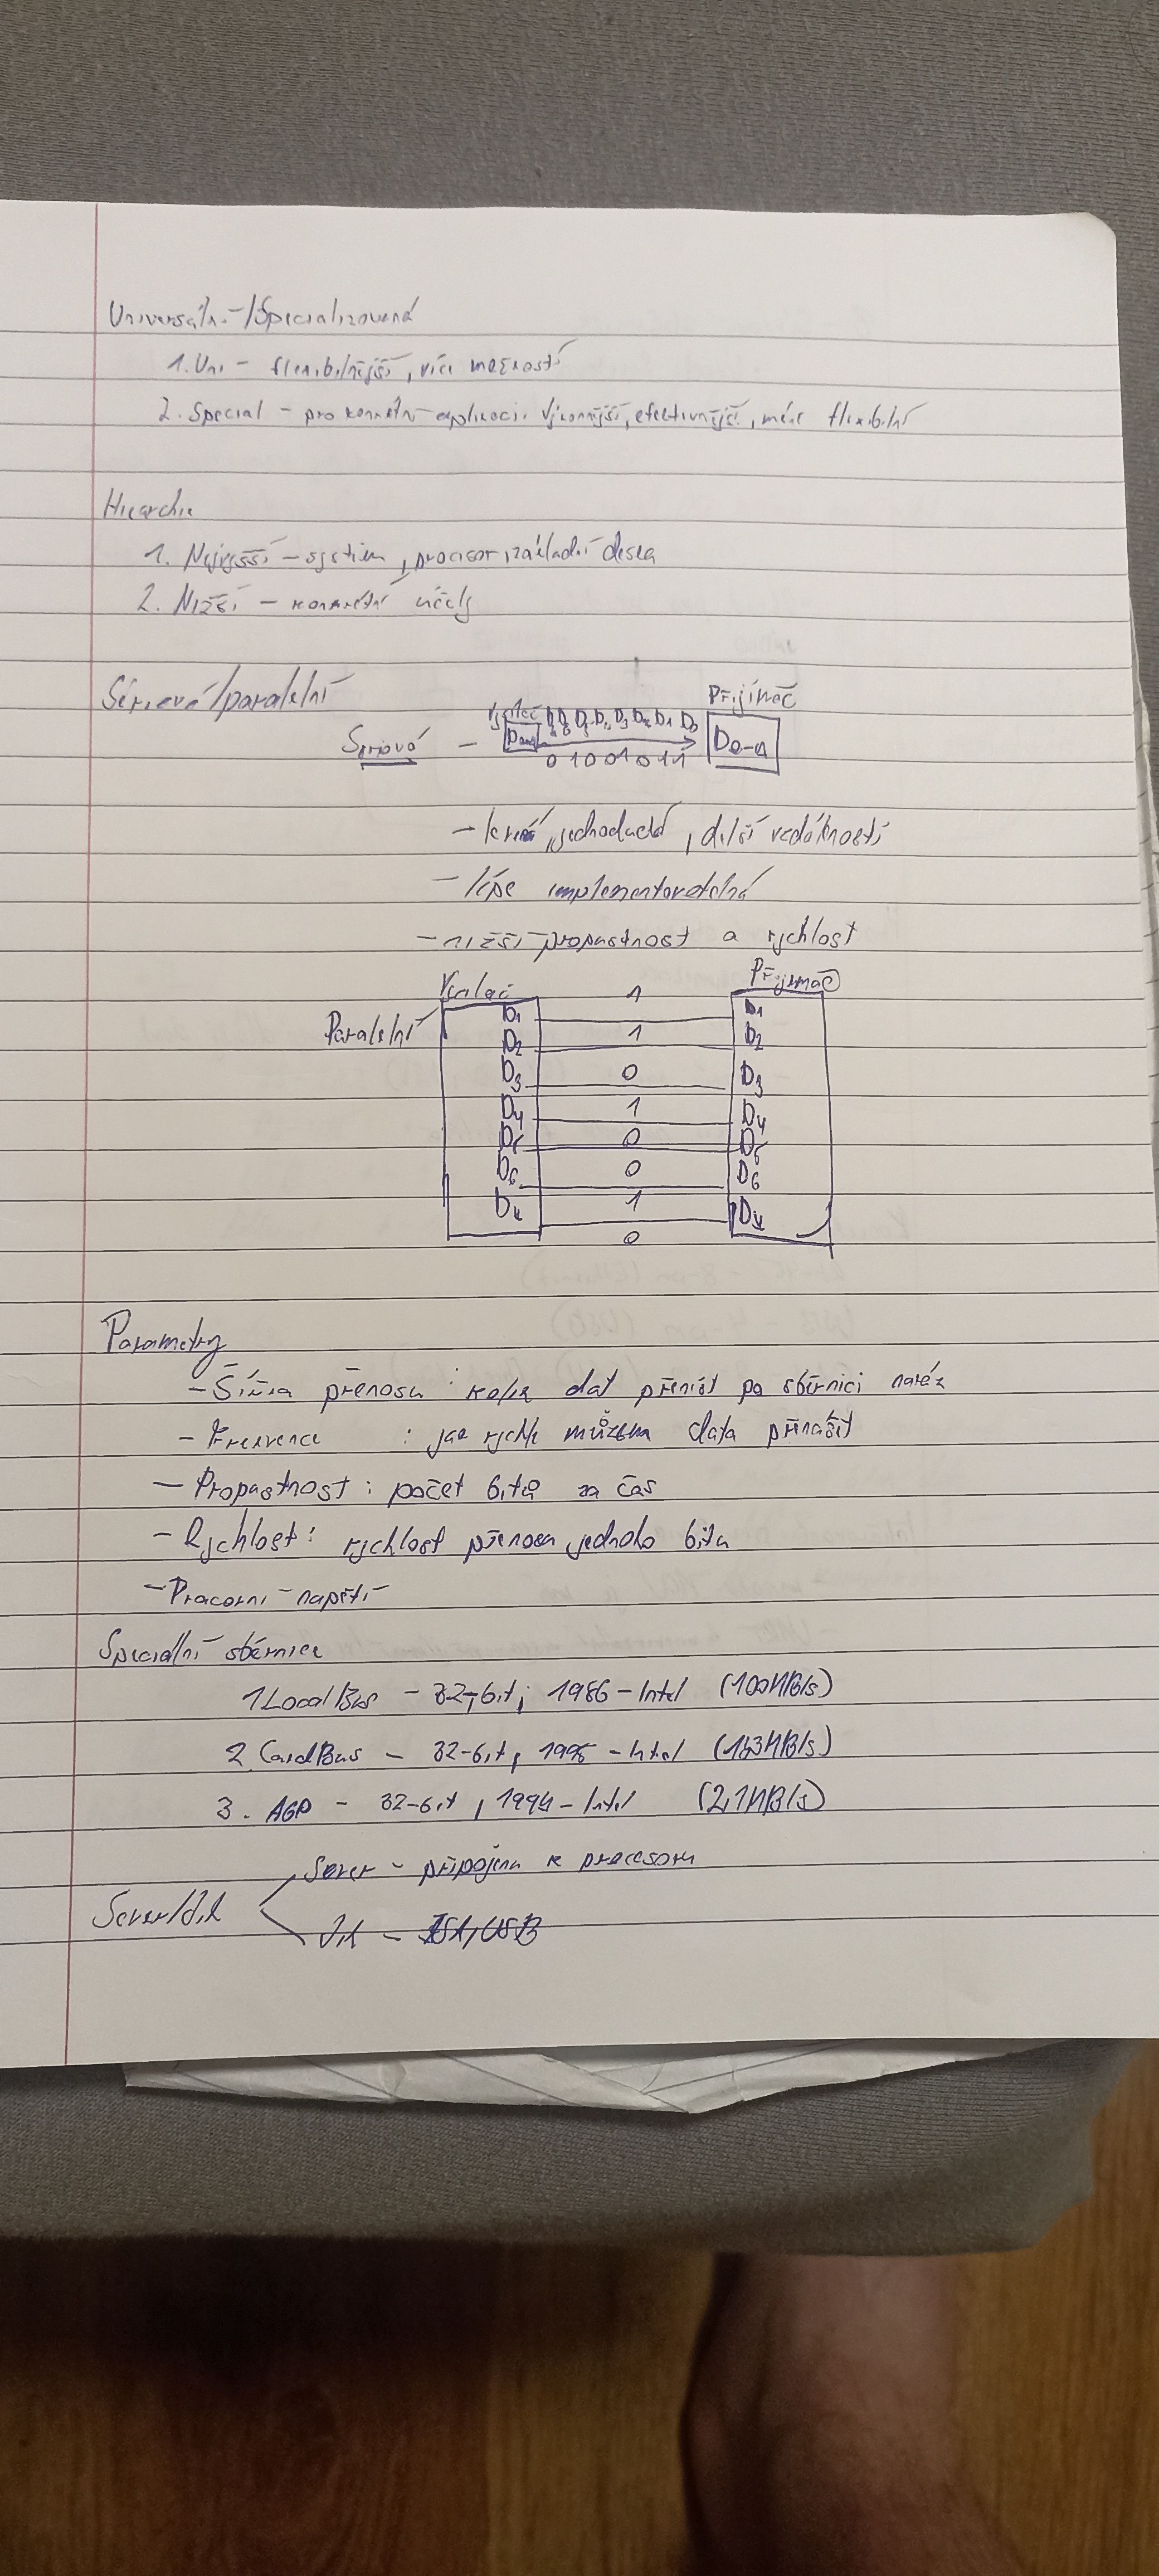 Universální/Specializovaná
1. Uni - flexibilnější, více možností
2. Special - pro konkrétní aplikaci. Výkonnější, efektivnější, méně flexibilní
Hierarchie
1. Nejvyšší - systém, procesor, základní deska
2. Nižší - konkrétní účely
Sériové/paralelní
Vysílač D6 D5 D4 D3 D2 D1 D0 Přijímač
Seriové - D0-4
0 1 0 0 1 0 1 1
- jednoduchá, delší vzdálenosti
- lépe implementovatelná
- nižší propustnost a rychlost
Vysílač 1 Přijímač
Paralelní D1 D1
D2 1 D2
D3 0 D3
D4 1 D4
D5 0 D5
D6 0 D6
1
0
Parametry
- Šířka přenosu : kolik dat přenést po sběrnici naráz
- Frekvence : jak rychle můžeme data přenášet
- Propustnost : počet bitů za čas
- Rychlost : rychlost přenosu jednoho bitu
- Pracovní napětí
Speciální sběrnice
1. Local Bus - 32-bit, 1986 - Intel (100MB/s)
2. CardBus - 32-bit, 1995 - Intel (133MB/s)
3. AGP - 32-bit, 1994 - Intel (2,1MB/s)
Sever - připojena k procesoru
Sever/Jih
Jih - ISA, USB